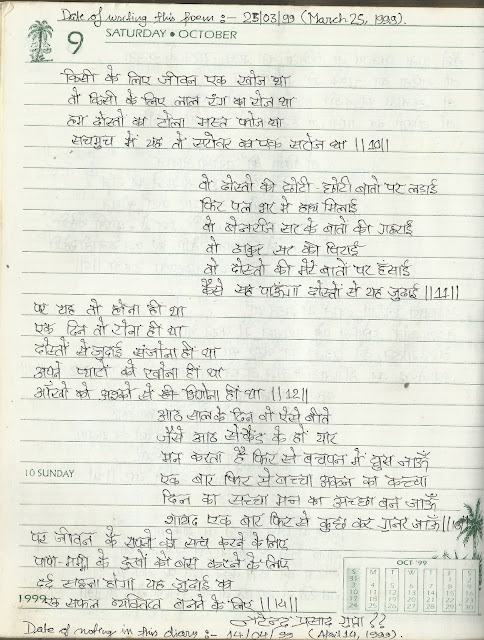 Date of writing this poem :- 25/03/99 (March 25, 1999).
9 SATURDAY • OCTOBER
किसी के लिए जीवन एक खोज था
तो किसी के लिए लाल रंग का रोज था
हम दोस्तो का टोला मस्त फौज था
सचमुच में यह तो का एक स्टेज था ||10||
वो दोस्तो की छोटी-छोटी बातो पर लडाई
फिर पल भर मे हाथ मिलाई
वो सर के बातो की गहराई
वो ठाकुर सर की पिटाई
वो दोस्तो की मेरे बातों पर हंसाई
कैसे सह पाऊँगा दोस्तों से यह जुदाई ||11||
पर यह तो होना ही था
एक दिन तो रोना ही था
दोस्तों से जुदाई संजोना ही था
अपने प्यारों को खोना ही था
आँखो को अश्कों से ही भिगोना ही था ||12||
आठ साल के दिन वो ऐसे बीते
जैसे आठ सेकेंड के हों यार
मन करता है फिर से बचपन में घुस जाऊँ
10 SUNDAY
एक बार फिर से बच्चा अकल का कच्चा
दिल का सच्चा मन का अच्छा बन जाऊँ
शायद एक बार फिर से कुछ कर गुजर जाऊँ ||13||
पर जीवन के सपनो को सच करने के लिए
पापा-मम्मी के दुखों को बस करने के लिए
दर्द सहना होगा यह जुदाई का
एक सफल व्यक्तित्व बनने के लिए ||14||
1999
जितेन्द्र प्रसाद गुप्ता
Date of noting in this diary :- 14/04/99 (April 14, 1999).
OCT '99
S M T W T F S
31 1 2
3 4 5 6 7 8 9
10 11 12 13 14 15 16
17 18 19 20 21 22 23
24 25 26 27 28 29 30